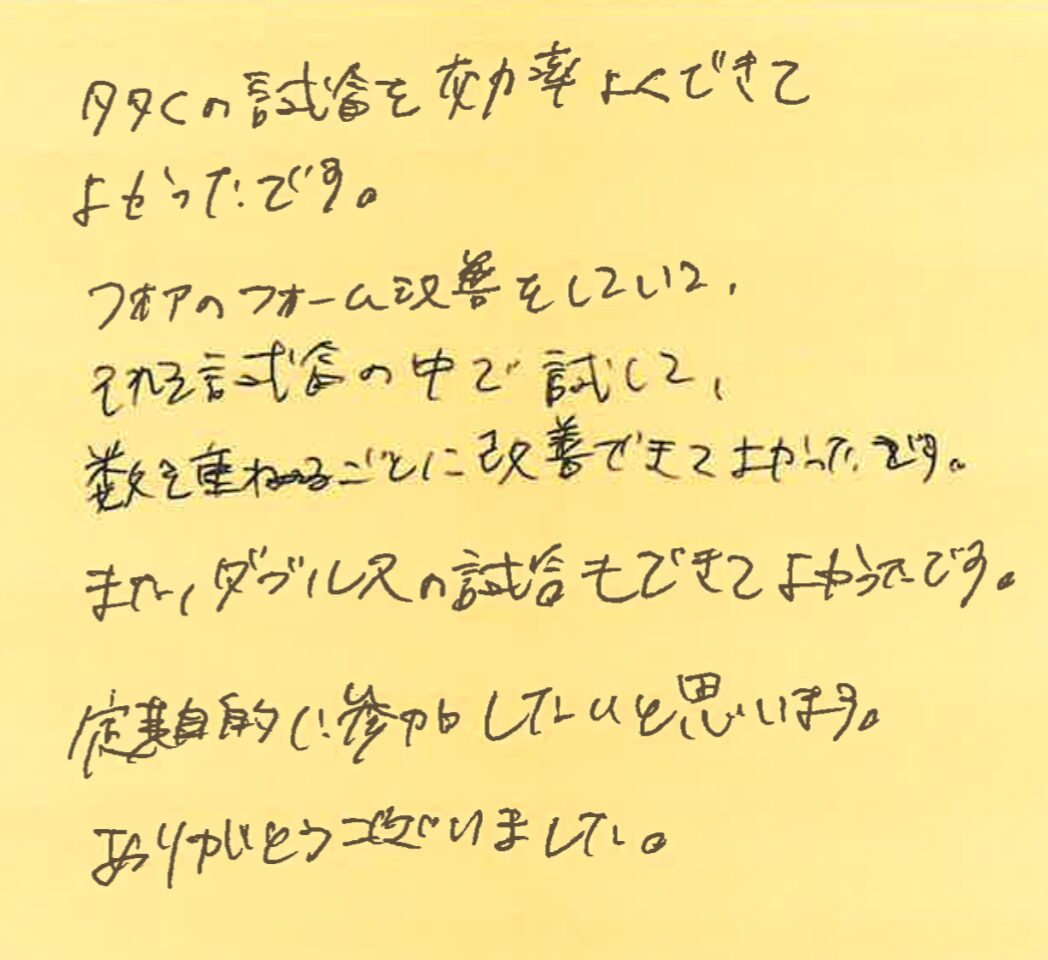 多くの試合を効率よくできて
よかったです。
フォアのフォーム改善をしていて、
それを試合の中で試して、
数を重ねるごとに改善できてよかったです。
また、ダブルスの試合もできてよかったです。
定期的に参加したいと思います。
ありがとうございました。